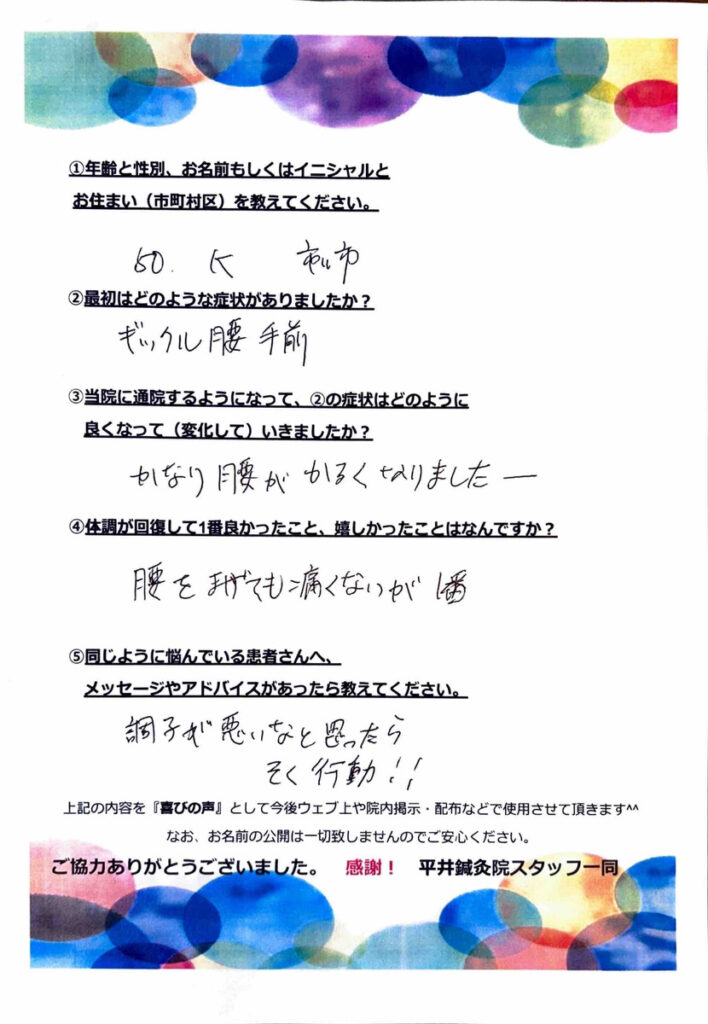 ①年齢と性別、お名前もしくはイニシャルと
お住まい（市町村区）を教えてください。
50. K
②最初はどのような症状がありましたか？
ギックル腰 手前
③当院に通院するようになって、②の症状はどのように
良くなって（変化して）いきましたか？
かなり腰が かるくなりましたー
④体調が回復して1番良かったこと、嬉しかったことはなんですか？
腰をまげても痛くないが 1番
⑤同じように悩んでいる患者さんへ、
メッセージやアドバイスがあったら教えてください。
調子が悪いなと思ったら
そく行動！！
上記の内容を『喜びの声』として今後ウェブ上や院内掲示・配布などで使用させて頂きます^^
なお、お名前の公開は一切致しませんのでご安心ください。
ご協力ありがとうございました。 感謝！ 平井鍼灸院スタッフ一同